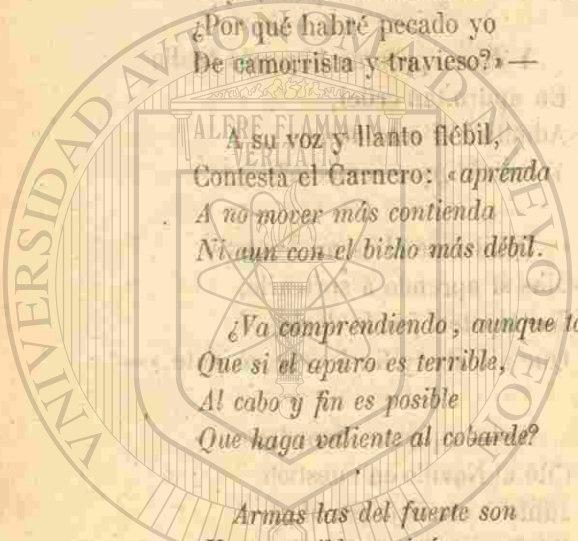 ¿Por qué habré pecado yo
De camorrista y travieso?» —
A su voz y llanto flébil,
Contesta el Carnero: «aprenda
A no mover más contienda
Ni aun con el bicho más débil.
¿Va comprendiendo, aunque ta
Que si el apuro es terrible,
Al cabo y fin es posible
Que haga valiente al cobarde?
Armas las del fuerte son
UNIVERSIDAD AUTONOMA DE NUEVO LEON
ALERE FLAMMAM
VERITATIS